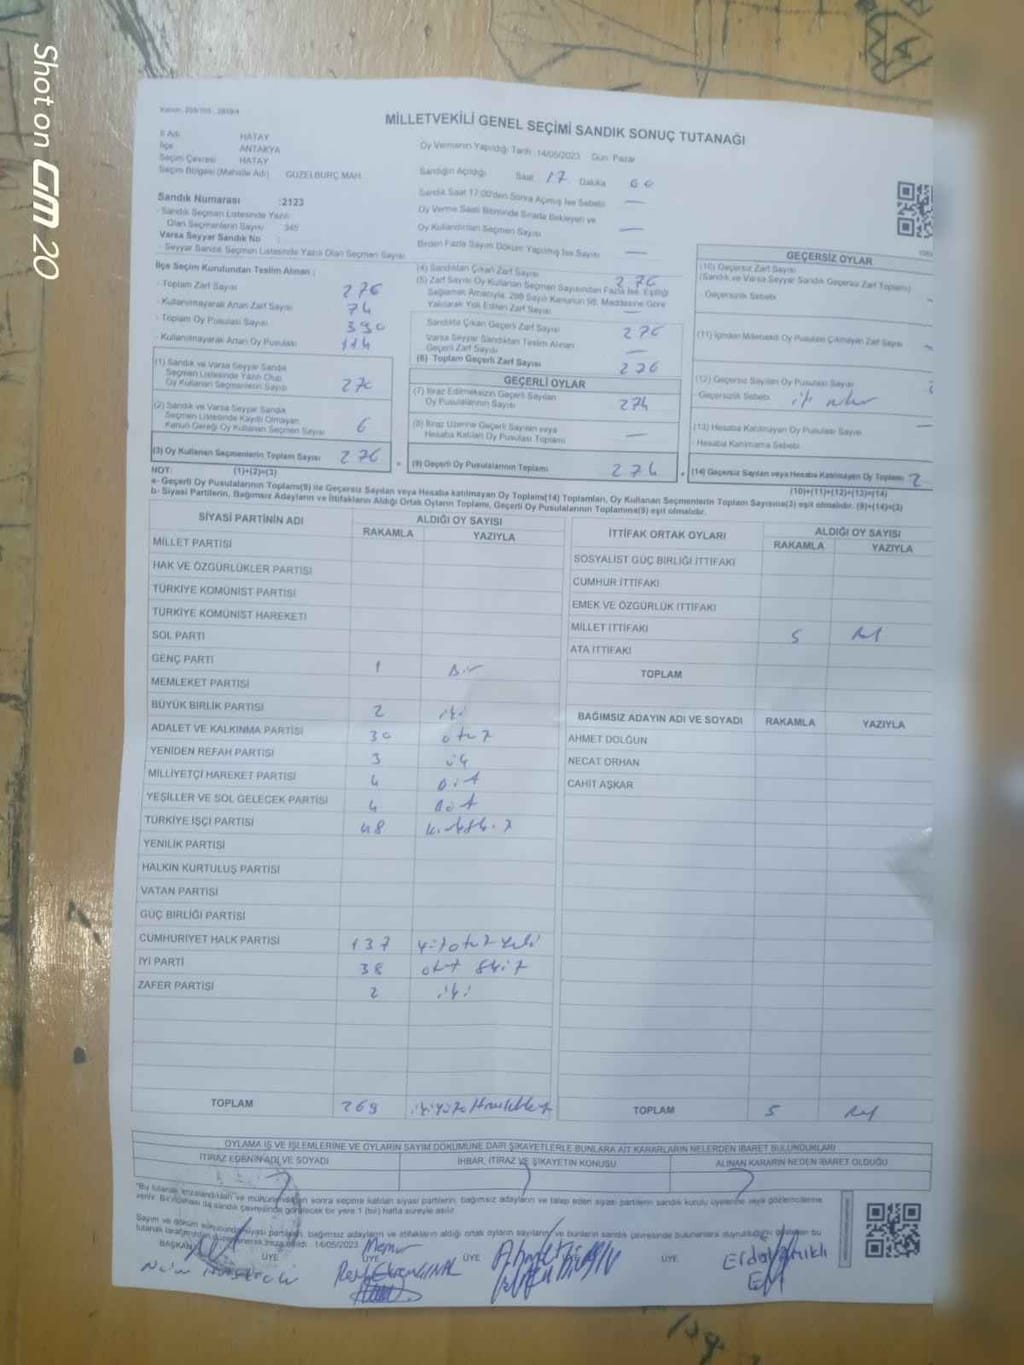 Shot on GM 20
MİLLETVEKİLİ GENEL SEÇİMİ SANDIK SONUÇ TUTANAĞI
İl Adı HATAY
İlçe ANTAKYA
Seçim Çevresi HATAY
Seçim Bölgesi (Mahalle Adı) GÜZELBURÇ MAH.
Oy Vermenin Yapıldığı Tarih :14/05/2023 Gün: Pazar
Sandığın Açıldığı Saat 17 Dakika
Sandık Saat 17:00'den Sonra Açılmış İse Sebebi —
Oy Verme Saati Bitiminde Sırada Bekleyen ve
Oy Kullandırılan Seçmen Sayısı —
Birden Fazla Sayım Döküm Yapılmış İse Sayısı —
Sandık Numarası :2123
- Sandık Seçmen Listesinde Yazılı
Olan Seçmenlerin Sayısı : 345
Varsa Seyyar Sandık No :
- Seyyar Sandık Seçmen Listesinde Yazılı Olan Seçmen Sayısı
İlçe Seçim Kurulundan Teslim Alınan :
- Toplam Zarf Sayısı
- Kullanılmayarak Artan Zarf Sayısı 74
- Toplam Oy Pusulası Sayısı 390
- Kullanılmayarak Artan Oy Pusulası 114
(1) Sandık ve Varsa Seyyar Sandık
Seçmen Listesinde Yazılı Olup
Oy Kullanan Seçmenlerin Sayısı 270
(2) Sandık ve Varsa Seyyar Sandık
Seçmen Listesinde Kayıtlı Olmayan
Kanun Gereği Oy Kullanan Seçmen Sayısı 6
(3) Oy Kullanan Seçmenlerin Toplam Sayısı 276
(1)+(2)=(3)
(4) Sandıktan Çıkan Zarf Sayısı 276
(5) Zarf Sayısı Oy Kullanan Seçmen Sayısından Fazla İse, Eşitliği
Sağlamak Amacıyla, 298 Sayılı Kanunun 98. Maddesine Göre
Yakılarak Yok Edilen Zarf Sayısı —
Sandıkta Çıkan Geçerli Zarf Sayısı 276
Varsa Seyyar Sandıktan Teslim Alınan
Geçerli Zarf Sayısı —
(6) Toplam Geçerli Zarf Sayısı 276
GEÇERLİ OYLAR
(7) İtiraz Edilmeksizin Geçerli Sayılan
Oy Pusulalarının Sayısı 274
(8) İtiraz Üzerine Geçerli Sayılan veya
Hesaba Katılan Oy Pusulası Toplamı —
(9) Geçerli Oy Pusulalarının Toplamı 274
GEÇERSİZ OYLAR
(10) Geçersiz Zarf Sayısı
(Sandık ve Varsa Seyyar Sandık Geçersiz Zarf Toplamı)
- Geçersizlik Sebebi
(11) İçinden Milletvekili Oy Pusulası Çıkmayan Zarf Sayısı
(12) Geçersiz Sayılan Oy Pusulası Sayısı
- Geçersizlik Sebebi
(13) Hesaba Katılmayan Oy Pusulası Sayısı
- Hesaba Katılmama Sebebi
(14) Geçersiz Sayılan veya Hesaba Katılmayan Oy Toplamı 2
(10)+(11)+(12)+(13)=(14)
NOT:
a- Geçerli Oy Pusulalarının Toplamı(9) ile Geçersiz Sayılan veya Hesaba katılmayan Oy Toplamı(14) Toplamları, Oy Kullanan Seçmenlerin Toplam Sayısına(3) eşit olmalıdır. (9)+(14)=(3)
b- Siyasi Partilerin, Bağımsız Adayların ve İttifakların Aldığı Ortak Oyların Toplamı, Geçerli Oy Pusulalarının Toplamına(9) eşit olmalıdır.
SİYASİ PARTİNİN ADI ALDIĞI OY SAYISI
RAKAMLA YAZIYLA
MİLLET PARTİSİ
HAK VE ÖZGÜRLÜKLER PARTİSİ
TÜRKİYE KOMÜNİST PARTİSİ
TÜRKİYE KOMÜNİST HAREKETİ
SOL PARTİ
GENÇ PARTİ 1 Bir
MEMLEKET PARTİSİ
BÜYÜK BİRLİK PARTİSİ 2 iki
ADALET VE KALKINMA PARTİSİ 30 otuz
YENİDEN REFAH PARTİSİ 3 üç
MİLLİYETÇİ HAREKET PARTİSİ 4 Dört
YEŞİLLER VE SOL GELECEK PARTİSİ 4 Dört
TÜRKİYE İŞÇİ PARTİSİ 48 kırksekiz
YENİLİK PARTİSİ
HALKIN KURTULUŞ PARTİSİ
VATAN PARTİSİ
GÜÇ BİRLİĞİ PARTİSİ
CUMHURİYET HALK PARTİSİ 137 yüzotuz yedi
İYİ PARTİ 38 otuz sekiz
ZAFER PARTİSİ 2 iki
TOPLAM 269 ikiyüzaltmışdokuz
İTTİFAK ORTAK OYLARI ALDIĞI OY SAYISI
RAKAMLA YAZIYLA
SOSYALİST GÜÇ BİRLİĞİ İTTİFAKI
CUMHUR İTTİFAKI
EMEK VE ÖZGÜRLÜK İTTİFAKI
MİLLET İTTİFAKI 5 beş
ATA İTTİFAKI
TOPLAM
BAĞIMSIZ ADAYIN ADI VE SOYADI RAKAMLA YAZIYLA
AHMET DOLĞUN
NECAT ORHAN
CAHİT AŞKAR
TOPLAM 5 beş
OYLAMA İŞ VE İŞLEMLERİNE VE OYLARIN SAYIM DÖKÜMÜNE DAİR ŞİKAYETLERLE BUNLARA AİT KARARLARIN NELERDEN İBARET BULUNDUKLARI
İTİRAZ EDENİN ADI VE SOYADI İHBAR, İTİRAZ VE ŞİKAYETİN KONUSU ALINAN KARARIN NEDEN İBARET OLDUĞU
BAŞKAN ÜYE ÜYE ÜYE ÜYE